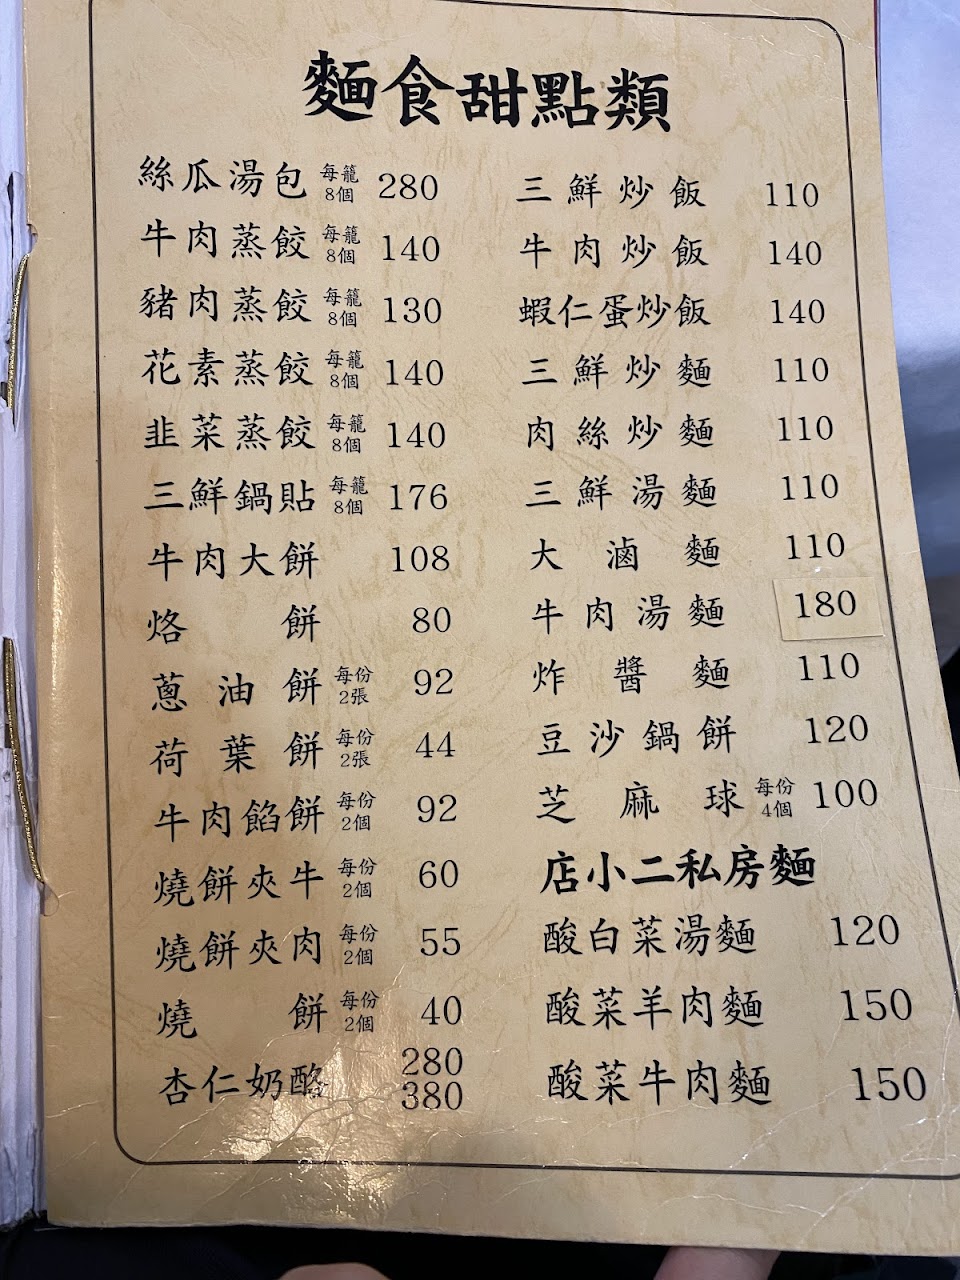 麵食甜點類
絲瓜湯包 每籠8個 280
牛肉蒸餃 每籠8個 140
豬肉蒸餃 每籠8個 130
花素蒸餃 每籠8個 140
韭菜蒸餃 每籠8個 140
三鮮鍋貼 每籠8個 176
牛肉大餅 108
烙餅 80
蔥油餅 每份2張 92
荷葉餅 每份2張 44
牛肉餡餅 每份2個 92
燒餅夾牛 每份2個 60
燒餅夾肉 每份2個 55
燒餅 每份2個 40
杏仁奶酪 280 380
三鮮炒飯 110
牛肉炒飯 140
蝦仁蛋炒飯 140
三鮮炒麵 110
肉絲炒麵 110
三鮮湯麵 110
大滷麵 110
牛肉湯麵 180
炸醬麵 110
豆沙鍋餅 120
芝麻球 每份4個 100
店小二私房麵
酸白菜湯麵 120
酸菜羊肉麵 150
酸菜牛肉麵 150